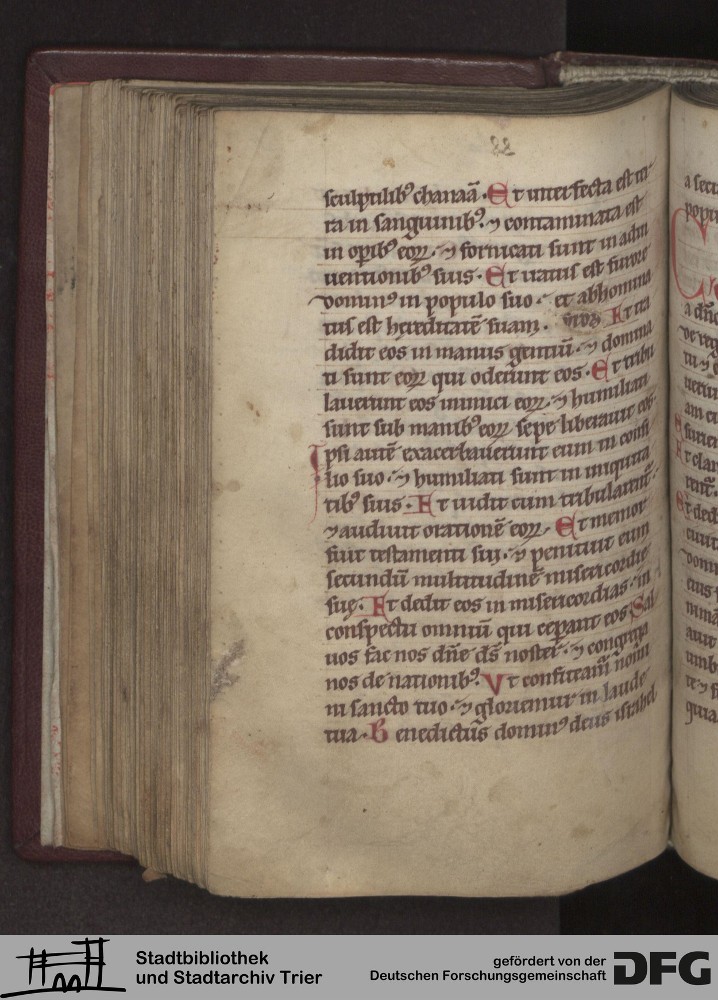 22
sculptilib⁹ chanaā. Et interfecta est ter
ra in sanguinib⁹. ⁊ contaminata est
in opib⁹ eoꝝ. ⁊ fornicati sunt in adin
uentionib⁹ suis. Et iratus est furore
domin⁹ in populo suo. et abhomina
tus est hereditatē suam. Et tra
didit eos in manus gentiū. ⁊ domina
ti sunt eoꝝ qui oderunt eos. Et tribu
lauerunt eos inimici eoꝝ. ⁊ humiliati
sunt sub manib⁹ eoꝝ sepe liberauit eos.
Ipsi autē exacerbauerunt eum in consi
lio suo. ⁊ humiliati sunt in iniquita
tib⁹ suis. Et uidit cum tribularent̄.
⁊ audiuit orationē eoꝝ. Et memor
fuit testamenti sui. ⁊ penituit eum
secundū multitudinē misericordie
sue. Et dedit eos in misericordias. in
conspectu omniū qui ceperant eos. Sal
uos fac nos dn̄e ds̄ noster. ⁊ congrega
nos de nationib⁹. Vt confiteam̄ nomi
ni sancto tuo. ⁊ gloriemur in laude
tua. Benedictus domin⁹ deus israhel
Stadtbibliothek
und Stadtarchiv Trier
gefördert von der
Deutschen Forschungsgemeinschaft
DFG